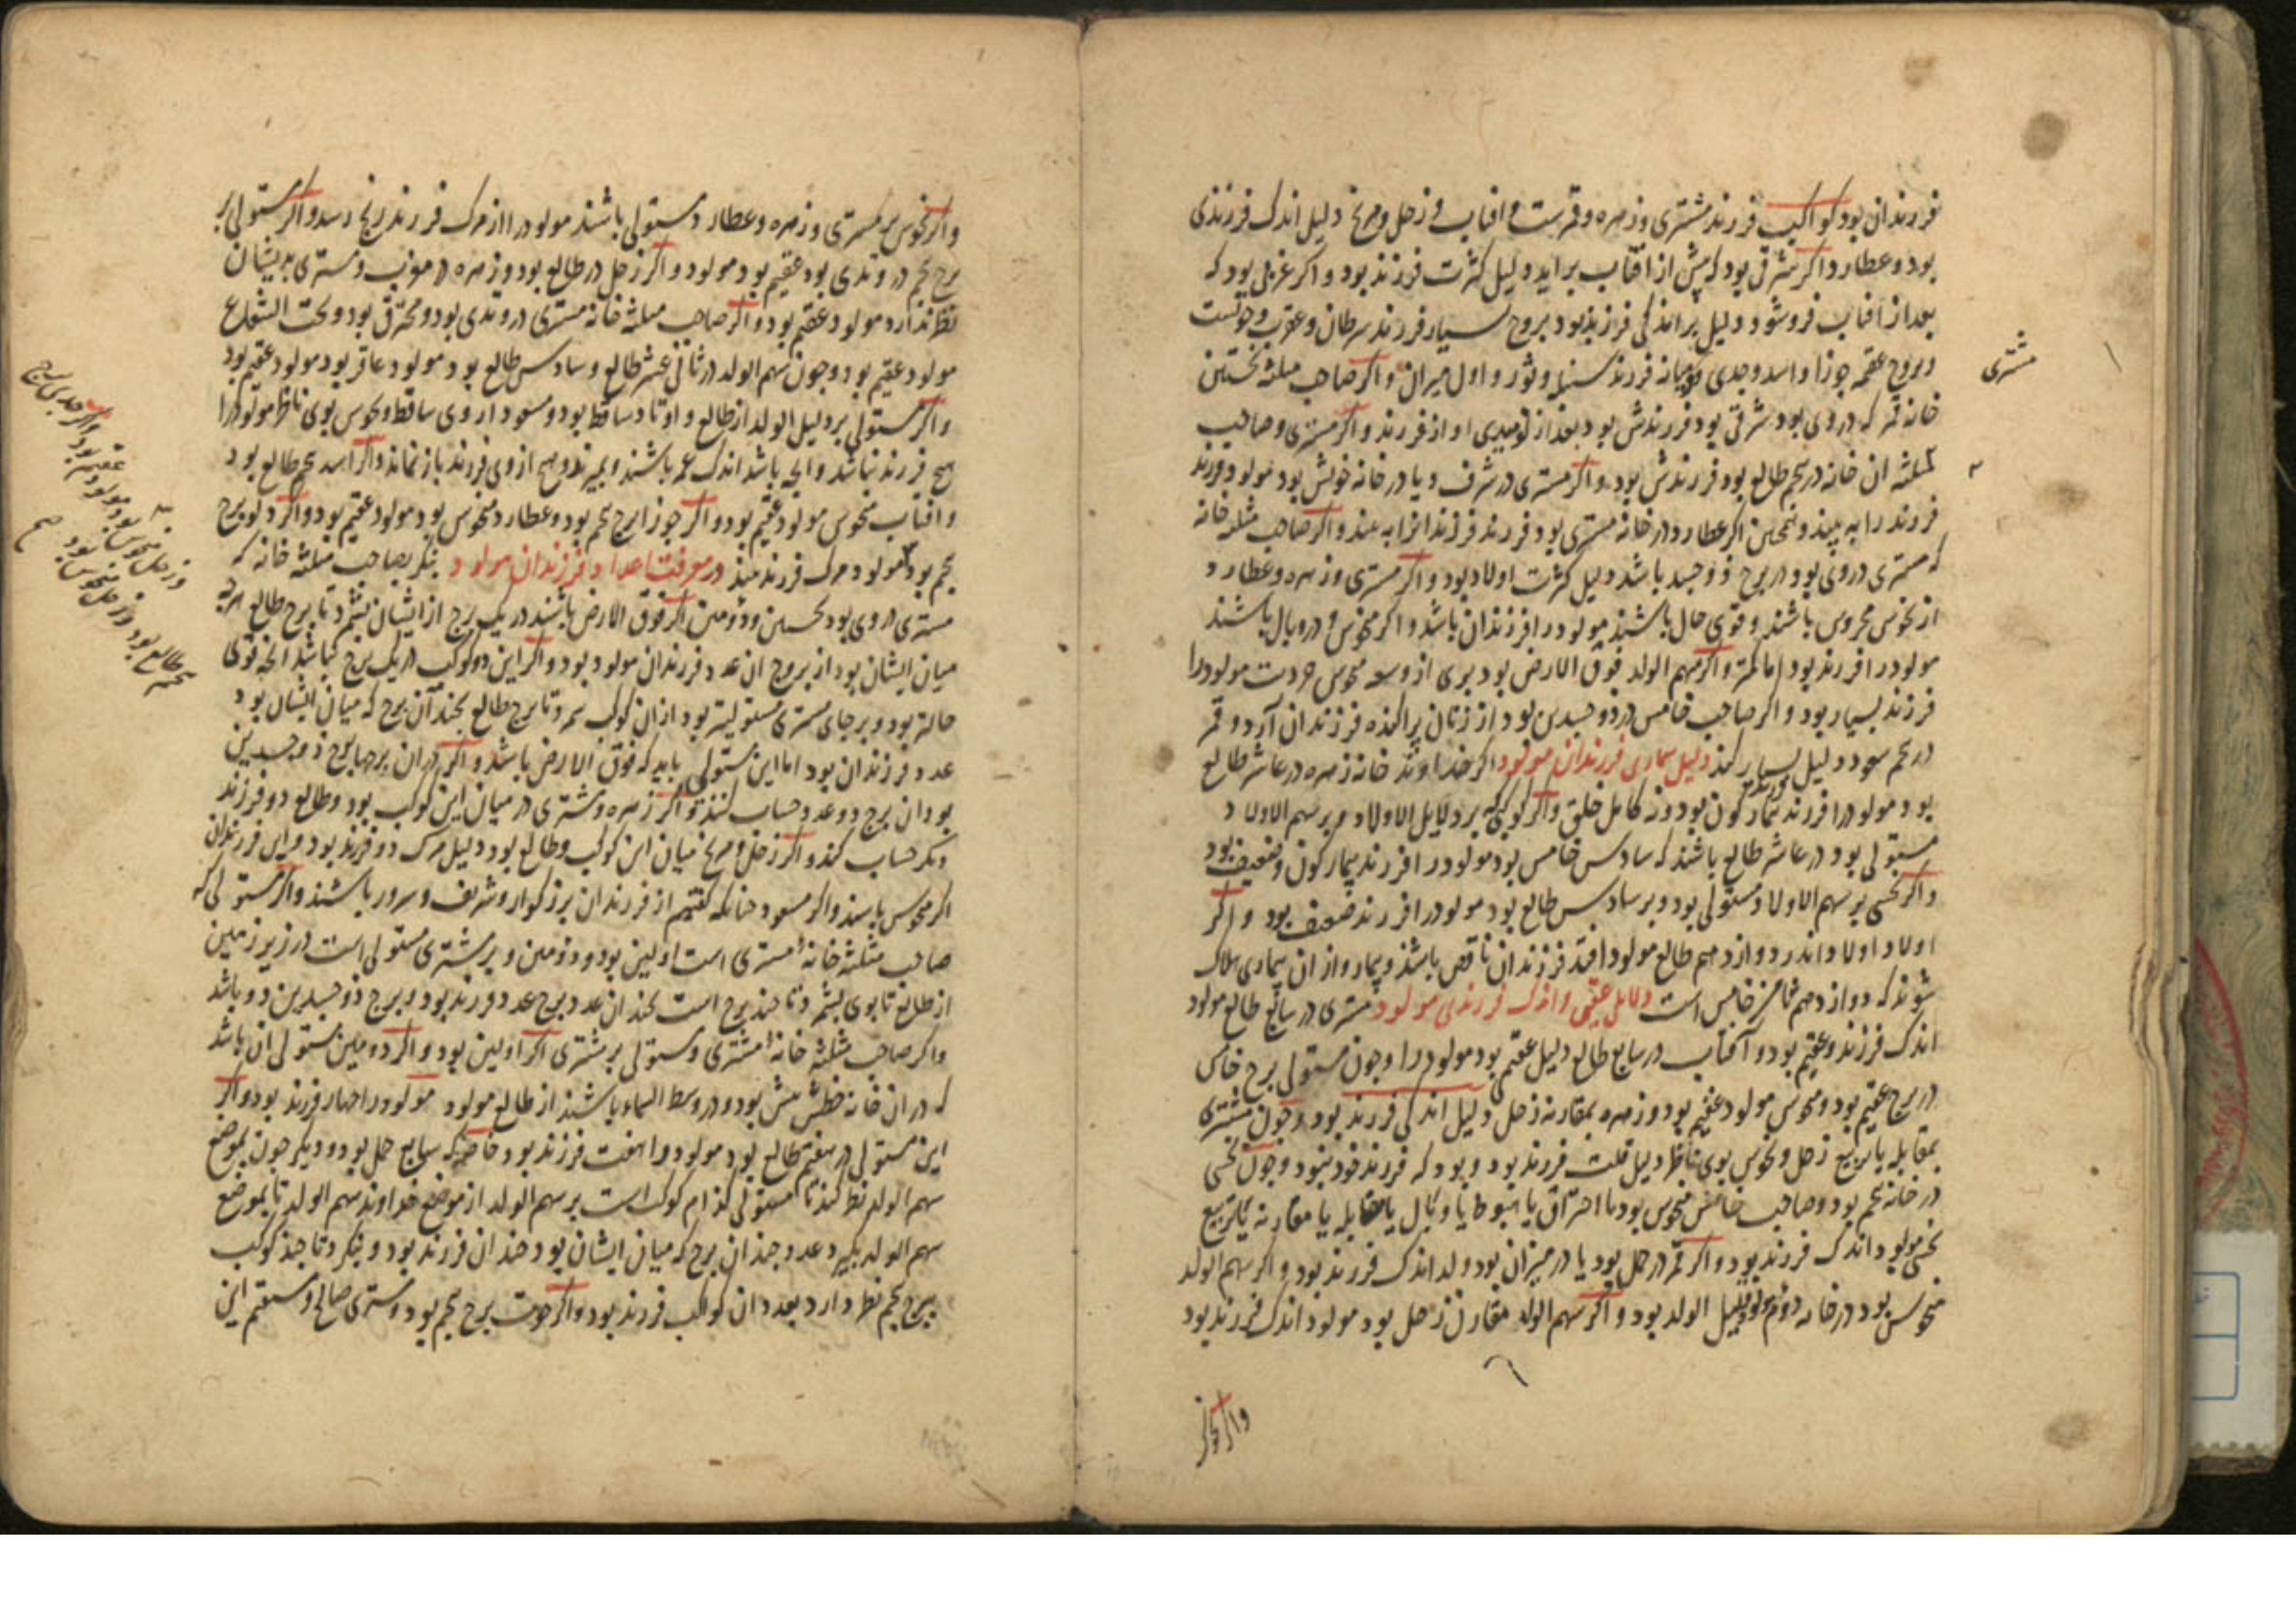 فرزندان بود کواکب فرزند مشتری و زهره و قمرست و افتاب و زحل و مریخ دلیل اندک فرزندی
بود و عطارد اگر شرقی بود که پیش از افتاب براید دلیل کثرت فرزند بود و اگر غربی بود که
بعد از افتاب فروشود دلیل بر اندکی فرزند بود بروج بسیار فرزند سرطان و عقرب و حوتست
و بروج عقیمه جوزا و اسد و جدی میانه فرزند سنبله و ثور و اول میزان و اگر صاحب مثلثه نخستین
مشتری
خانه که در وی بود شرقی بود فرزندش بود بعد از نومیدی او از فرزند و اگر مشتری و صاحب
مثلثه ان خانه در پنجم طالع بود فرزندش بود و اگر مشتری در شرف و یا در خانه خویش بود مولود فرزند
فرزند را به بیند و همچنین اگر عطارد در خانه مشتری بود فرزند فرزندانرا به بیند و اگر صاحب مثلثه خانه
که مشتری در وی بود در برج ذوجسد باشد دلیل کثرت اولاد بود و اگر مشتری و زهره و عطارد
از نحوس محروس باشند و قوی حال باشند مولود را فرزندان باشد و اگر منحوس و در وبال باشند
مولود را فرزند بود اما کمتر و اگر سهم الولد فوق الارض بود بری از منحوس مولود را
فرزند بسیار بود و اگر صاحب خامس در ذوجسدین بود از زنان پراکنده فرزندان آرد و قمر
در پنجم سود دلیل بسیار کند دلیل بیماری فرزندان مولود اگر خداوند خانه زهره در عاشر طالع
بود مولود را فرزند بیمار کون بود و نه کامل خلق و اگر کوکبی که بر دلایل الاولاد و بر سهم الاولاد
مستولی بود در عاشر طالع باشند که سادس خامس بود مولود را فرزند بیمار کون و ضعیف بود
و اگر نحسی بر سهم الاولاد مستولی بود و بر سادس طالع بود مولود را فرزند ضعیف بود و اگر
اولاد اندر دوازدهم طالع مولود افتد فرزندان ناقص باشند و بیمار و از ان بیماری هلاک
شوند که دوازدهم ثامن خامس است دلایل عقیمی و اندک فرزندی مولود مشتری در سابع طالع مولود
اندک فرزند و عقیم بود و آفتاب در سابع طالع دلیل عقیم بود مولود را و چون مستولی برج خامس
در برج عقیم بود و منحوس مولود عقیم بود و زهره بمقارنه زحل دلیل اندکی فرزند بود و چون مشتری
بمقابله یا تربیع زحل و نحوس بوی ناظر دلیل قلت فرزند بود و بود که فرزند خود نبود و چون نحسی
در خانه پنجم بود و صاحب خامس منحوس بود یا احتراق یا هبوط یا وبال یا مقابله یا مقارنه یا تربیع
نحسی مولود اندک فرزند بود و اگر قمر در حمل بود یا در میزان بود ولد اندک فرزند بود و اگر سهم الولد
منحوس بود در خانه دوم قلیل الولد بود و اگر سهم الولد مقارن زحل بود مولود اندک فرزند بود
و اگر نحوس
و اگر نحوس بر مشتری و زهره و عطارد مستولی باشند مولود را از مرک فرزند رنج رسد و اگر مستولی بر
برج پنجم در وتدی بود عقیم بود مولود و اگر زحل در طالع بود و زهره در مغرب و مشتری بدیشان
نظر ندارد مولود عقیم بود و اگر صاحب مثلثه خانه مشتری در وتدی بود و محترق بود و تحت الشعاع
مولود عقیم بود و چون سهم الولد در ثانی عشر طالع و سادس طالع بود مولود عاقر بود مولود عقیم بود
و اگر مستولی بر دلیل الولد از طالع و اوتاد ساقط بود و مسعود از وی ساقط و نحوس بوی ناظر مولود را
هیچ فرزند نباشد و انچه باشد اندک عمر باشند و بمیرند و هیچ از وی فرزند باز نماند و اگر اسد پنجم طالع بود
و افتاب منحوس مولود عقیم بود و اگر جوزا برج پنجم بود و عطارد منحوس بود مولود عقیم بود و اگر دلو برج
پنجم بود مولود مرک فرزند بیند در معرفت اعداد فرزندان مولود بنکر بصاحب مثلثه خانه که
مشتری در وی بود نخستین و دومین اگر فوق الارض باشند در یک برج از ایشان بشمرد تا برج طالع هرچه
میان ایشان بود از بروج ان عدد فرزندان مولود بود و اگر این دو کوکب در یک برج نباشد انچه قوی
حالتر بود و بر جای مشتری مستولیتر بود از ان کوکب شمرد تا برج طالع بچند آن برج که میان ایشان بود
عدد فرزندان بود اما این مستولی باید که فوق الارض باشد و اگر در ان برجها برج ذوجسدین
بود ان برج دو عدد حساب کنند و اگر زهره و مشتری در میان این کوکب بود و طالع دو فرزند
دیکر حساب کند و اگر زحل و مریخ میان این کوکب و طالع بود دلیل مرک دو فرزند بود و این فرزندان
اگر منحوس باشند و اگر مسعود چنانکه کفتیم از فرزندان بزرکوار و شریف و سرور باشند و اگر مستولی که
صاحب مثلثه خانه مشتری است اولین بود و دومین و بر مشتری مستولی است در زیر زمین
از طالع تا بوی بشمرد تا چند برج است بچند ان عدد برج عدد فرزند بود و برج ذوجسدین دو باشد
و اگر صاحب مثلثه خانه مشتری و مستولی بر مشتری اگر اولین بود و اگر دومین مستولی ان باشد
که در ان خانه حظش بیش بود و در وسط السماء باشند از طالع مولود مولود را چهار فرزند بود و اگر
این مستولی در هفتم طالع بود مولود را هفت فرزند بود خاصه که سابع حمل بود و دیکر چون بموضع
سهم الولد نظر کند تا مستولی کدام کوکب است بر سهم الولد از موضع خداوند سهم الولد تا بموضع
سهم الولد بکیرد عدد چندان برج که میان ایشان بود چندان فرزند بود و بنکرد تا چند کوکب
ببرج پنجم نظر دارد بعدد ان کواکب فرزند بود و اگر حوت برج پنجم بود و مشتری صالح و مستقیم این
و اگر جدی برج
پنجم طالع بود و زحل منحوس بود